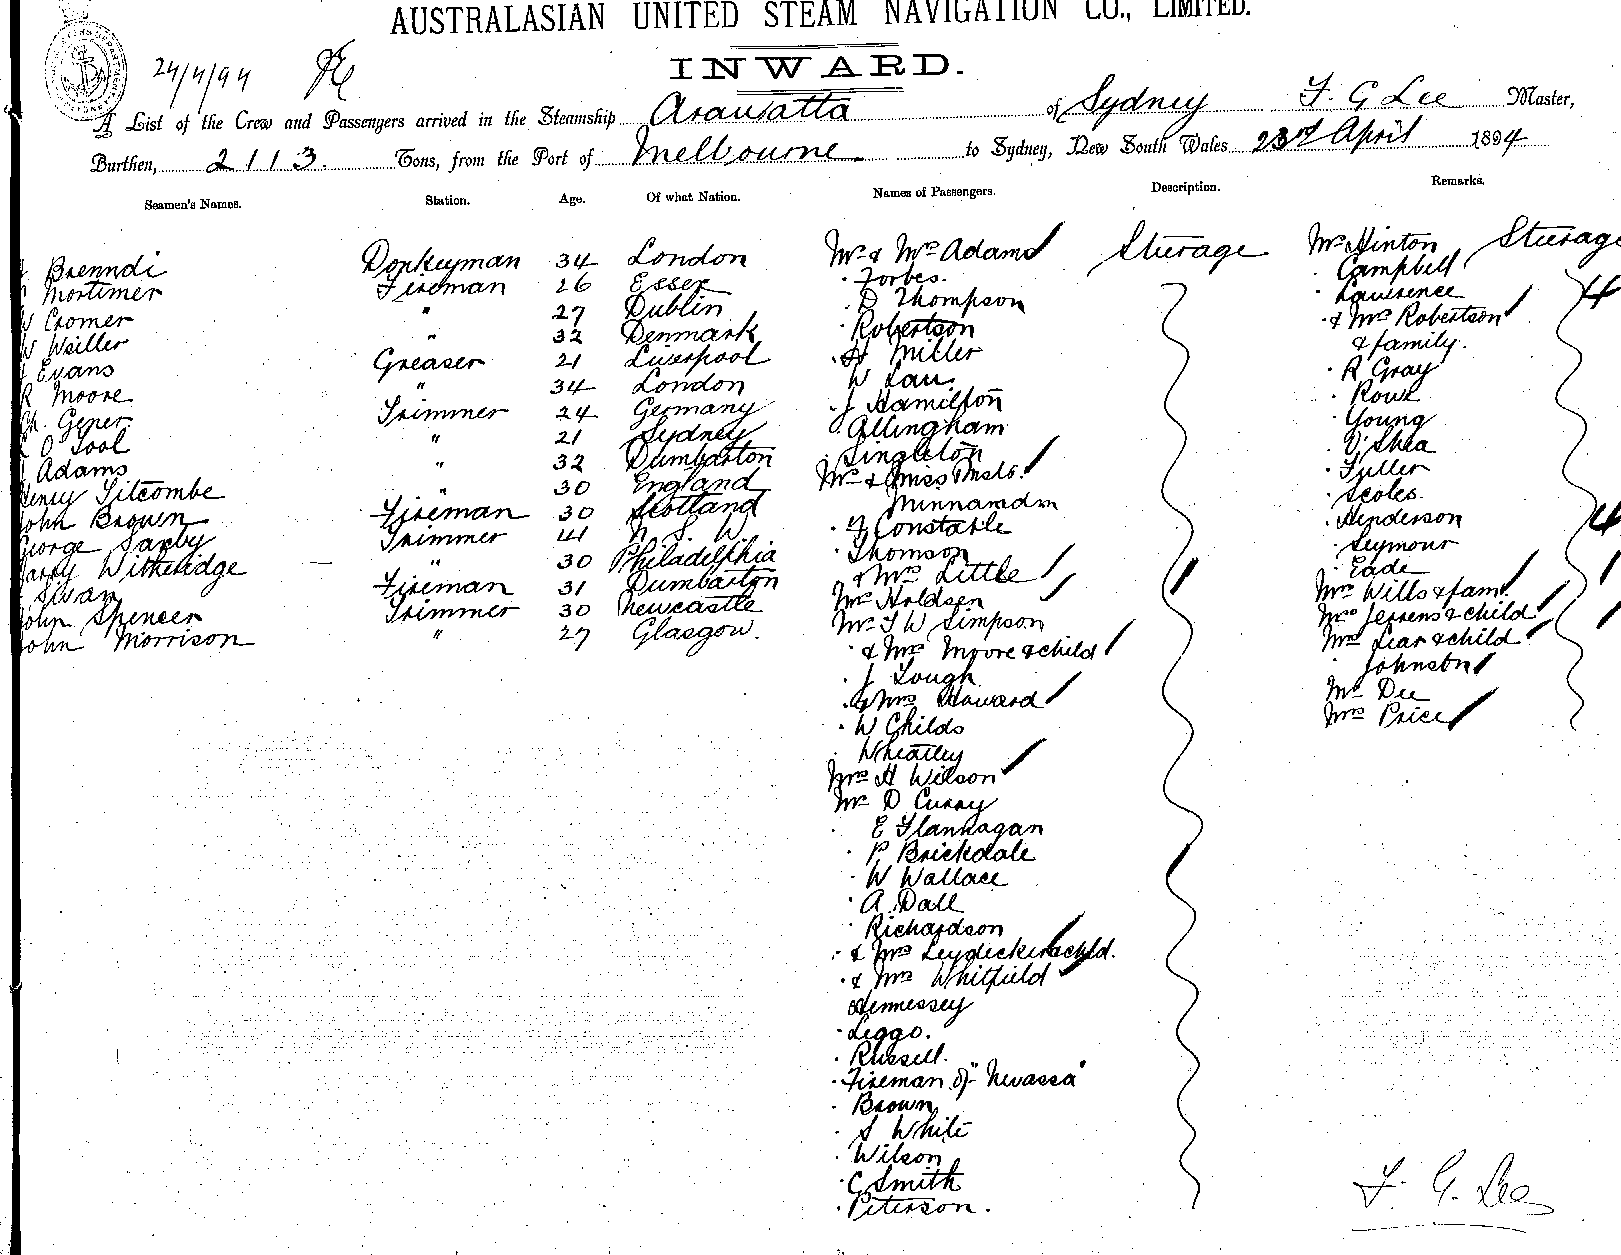 AUSTRALASIAN UNITED STEAM NAVIGATION CO., LIMITED.
INWARD.
24/4/94
A List of the Crew and Passengers arrived in the Steamship Arawatta of Sydney F. G Lee Master,
Burthen, 2113. Tons, from the Port of Melbourne to Sydney, New South Wales 23rd April 1894
Seamen's Names. Station. Age. Of what Nation. Names of Passengers. Description. Remarks.
Brenndi Donkeyman 34 London
Mortimer Fireman 26 Essex
W Cromer " 27 Dublin
W Weiller " 32 Denmark
Evans Greaser 21 Liverpool
R Moore " 34 London
Ch. Geper Trimmer 24 Germany
O Tool " 21 Sydney
Adams " 32 Dumbarton
Henry Titcombe " 30 England
John Brown Fireman 30 Scotland
George Saxby Trimmer 41 N. S. W
Harry Witheridge " 30 Philadelphia
Swan Fireman 31 Dumbarton
John Spencer Trimmer 30 Newcastle
John Morrison " 27 Glasgow.
Mr & Mrs Adams Steerage
· Forbes.
· D Thompson
· Robertson
· H Miller
W Lau.
· J Hamilton
Allingham
· Singleton
Mr & Miss & Mstr.
Minnamdin
· Constable
· Thomson
· & Mrs Little
Mr Holdsen
Mr T W Simpson
· & Mrs Moore & child
· J Lough
· & Mrs Howard
· W Childs
· Wheatley
Mrs H Wilson
Mr D Curry
· E Flannagan
· P. Brickdale
· W Wallace
· A. Dall
· Richardson
· & Mrs Leydicker & chld.
· & Mrs Whitfield
Hennessey
· Leggo.
· Russell.
· Fireman of "Nevassa"
· Brown
· S White
· Wilson
· C Smith
· Peterson.
Mr Hinton Steerage
· Campbell
· Lawrence 4
· & Mrs Robertson
& family.
· R Gray
· Rowe
· Young
· O'Shea
· Fuller
· Scoles.
· Henderson 4
· Seymour
· Eade
Mrs Wills & fam.
Mrs Jerrens & child
Mrs Lear & child
· Johnston
Mr Dee
Mrs Price
F. G. Lee